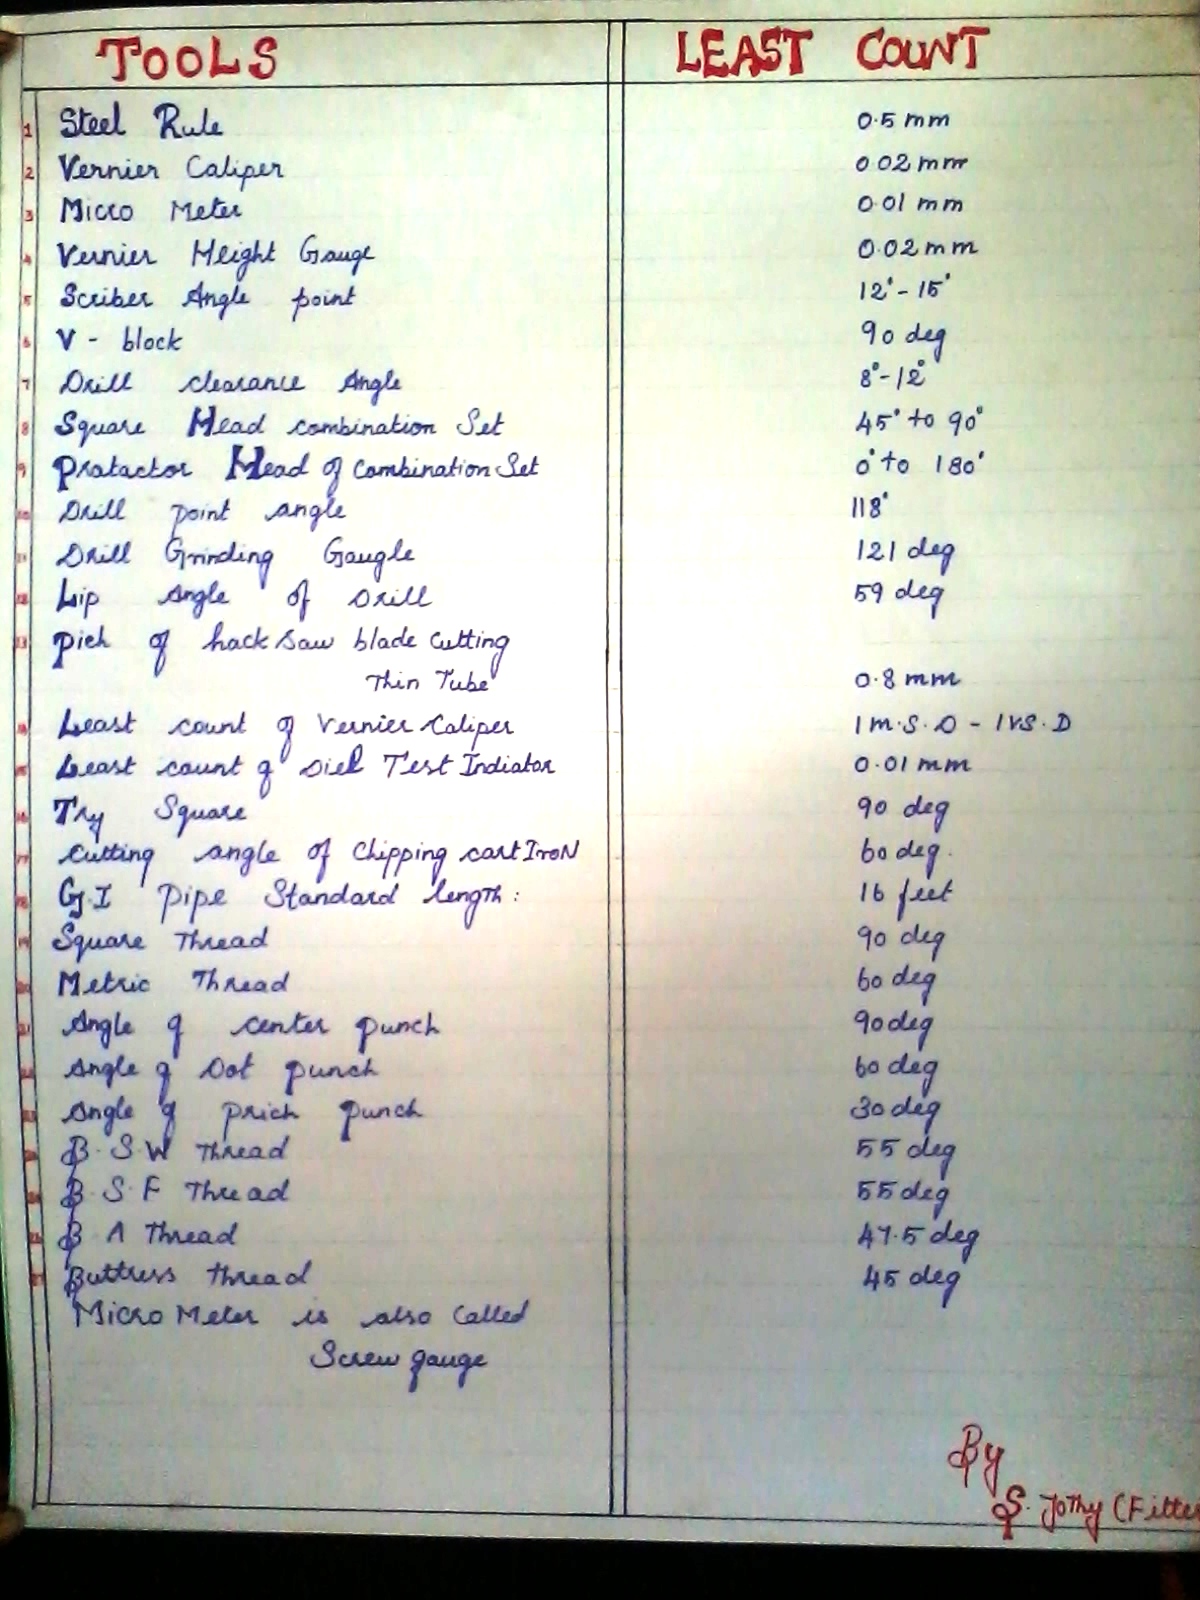 TOOLS LEAST COUNT
1 Steel Rule 0.5 mm
2 Vernier Caliper 0.02 mm
3 Micro Meter 0.01 mm
4 Vernier Height Gauge 0.02 mm
5 Scriber Angle point 12° - 15°
6 V - block 90 deg
7 Drill clearance Angle 8° - 12°
8 Square Head combination Set 45° to 90°
9 Protactor Head of Combination Set 0° to 180°
10 Drill point angle 118°
11 Drill Grinding Gaugle 121 deg
12 Lip Angle of Drill 59 deg
13 pich of hack saw blade Cutting
Thin Tube 0.8 mm
14 Least count of Vernier Caliper 1 M.S.D - 1 VS.D
15 Least count of Diel Test Indiator 0.01 mm
16 Try Square 90 deg
17 Cutting angle of Chipping cast IroN 60 deg.
18 G.I pipe Standard length: 16 feet
19 Square Thread 90 deg
20 Metric Thread 60 deg
21 Angle of center punch 90 deg
22 Angle of Dot punch 60 deg
23 Angle of prich punch 30 deg
B.S.W Thread 55 deg
B.S.F Thread 55 deg
B A Thread 47.5 deg
27 Buttress thread 45 deg
Micro Meter is also Called
Screw gauge
By
S. Jothy (Fitter